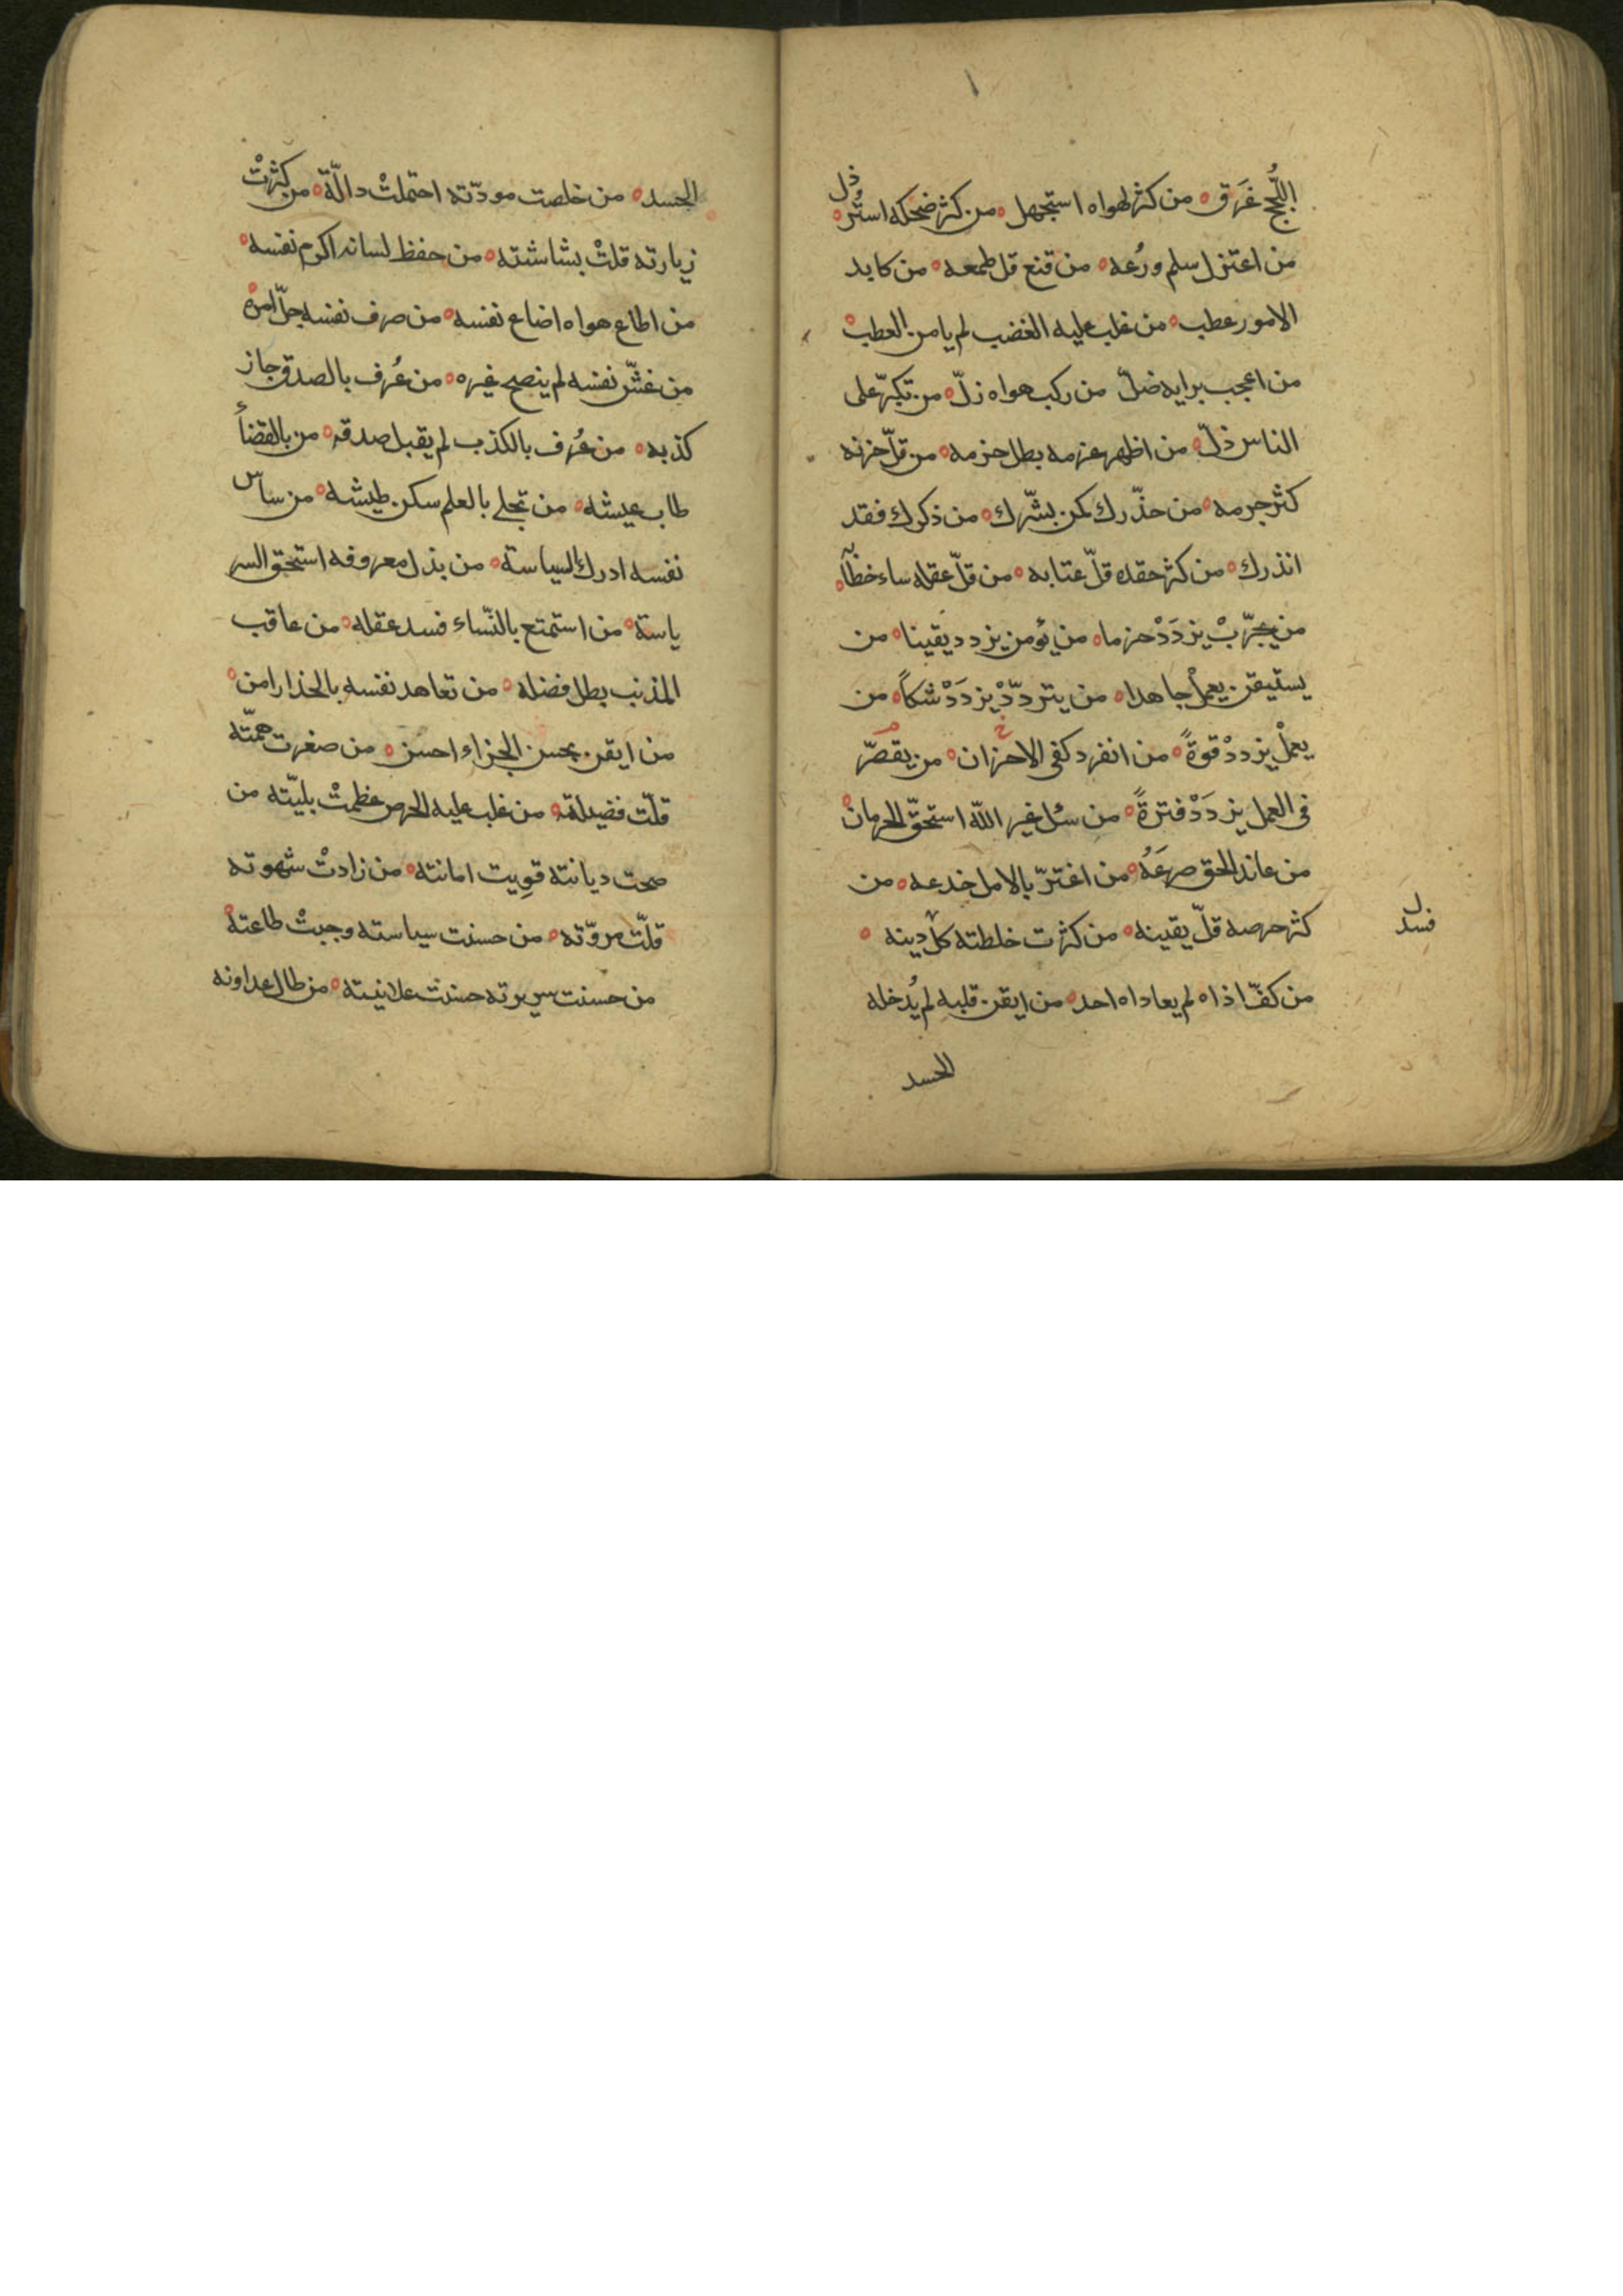 اللُّجج غَرَق ه من كثر لهواه استجهل ه من كثر ضحكه استُرذل ه
من اعتزل سلم ورُعه ه من قنع قل طمعه ه من كابد
الامور عطب ه من غلب عليه الغضب لم يامن العطب ه
من اعجب برايه ضلّ من ركب هواه زلّ ه من تكبّر على
الناس ذلّ ه من اظهر عزمه بطل حزمه ه من قلّ حزنه
كثر جرمه ه من حذّرك كمن بشّرك ه من ذكرك فقد
انذرك ه من كثر حقده قلّ عتابه ه من قلّ عقله ساء خطاٰ ه
من يجرّبْ يزدَدْ حزما ه من يؤمن يزدد يقينا ه من
يستيقن يعملْ جاهدا ه من يتردّدْ يزدَدْ شكاً ه من
يعملْ يزددْ قوةً ه من انفرد كفى الاحزان ه من يقصّر
فى العمل يزدَدْ فترةً ه من سئل غير الله استحقّ الحرمان ه
من عاند الحق صرعَهُ ه من اغترّ بالامل خدعه ه من
كثر حرصه قلّ يقينه ه من كثرت خلطته كلّ دينه ه
فسد
من كفّ اذاه لم يعاداه احد ه من ايقن قلبه لم يُدخله
الحسد
الحسد ه من خلصت مودّته احتملتْ دالّة ه من كثرتْ
زيارته قلتْ بشاشته ه من حفظ لسانه اكرم نفسه ه
من اطاع هواه اضاع نفسه ه من صرف نفسه جلّ امره
من غشّ نفسه لم ينصح غيره ه من عُرف بالصدق جاز
كذبه ه من عُرف بالكذب لم يقبل صدقه ه من بالقضأ
طاب عيشه ه من تجلى بالعلم سكن طيشه ه من ساس
نفسه ادرك السياسة ه من بذل معروفه استحق السر
ياسة ه من استمتع بالنّساء فسد عقله ه من عاقب
المذنب بطل فضله ه من تعاهد نفسه بالحذار امن ه
من ايقن بحسن الجزاء احسن ه من صغرت همّته
قلّت فضيلته ه من غلب عليه الحرص عظمتْ بليّته من
صحت ديانته قويت امانته ه من زادتْ شهوته
قلّت مروّته ه من حسنت سياسته وجبتْ طاعته ه
من حسنت سريرته حسنت علانيته ه من طال عداونه